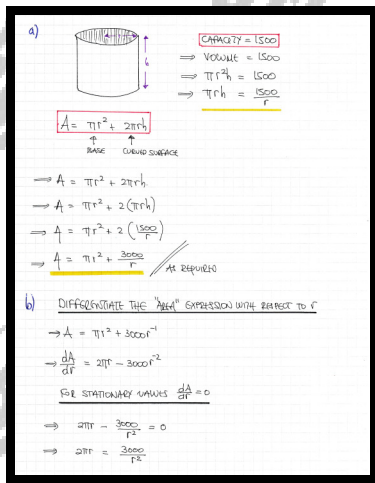 a)
CAPACITY = 1500
⇒ VOLUME = 1500
⇒ πr²h = 1500
⇒ πrh = 1500/r
A = πr² + 2πrh
↑ BASE ↑ CURVED SURFACE
⇒ A = πr² + 2πrh
⇒ A = πr² + 2(πrh)
⇒ A = πr² + 2(1500/r)
⇒ A = πr² + 3000/r
AS REQUIRED
b) DIFFERENTIATE THE "AREA" EXPRESSION WITH RESPECT TO r
⇒ A = πr² + 3000r⁻¹
⇒ dA/dr = 2πr - 3000r⁻²
FOR STATIONARY VALUES dA/dr = 0
⇒ 2πr - 3000/r² = 0
⇒ 2πr = 3000/r²